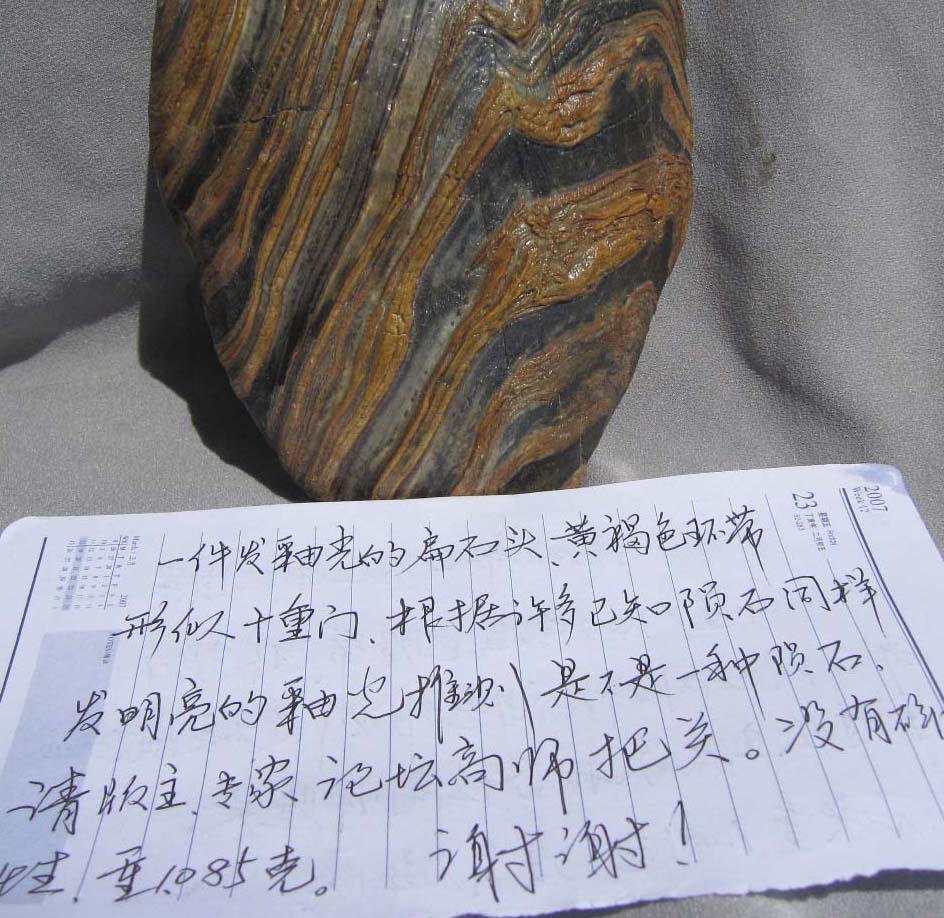 2007
Week 12
23
March 三月 2007
NOTES/备忘
一件发釉光的扁石头、黄褐色环带
形似十重门、根据许多已知陨石同样
发明亮的釉光推测是不是一种陨石.
请版主、专家论坛高师把关。没有磁
性. 重1.085克。 谢谢!